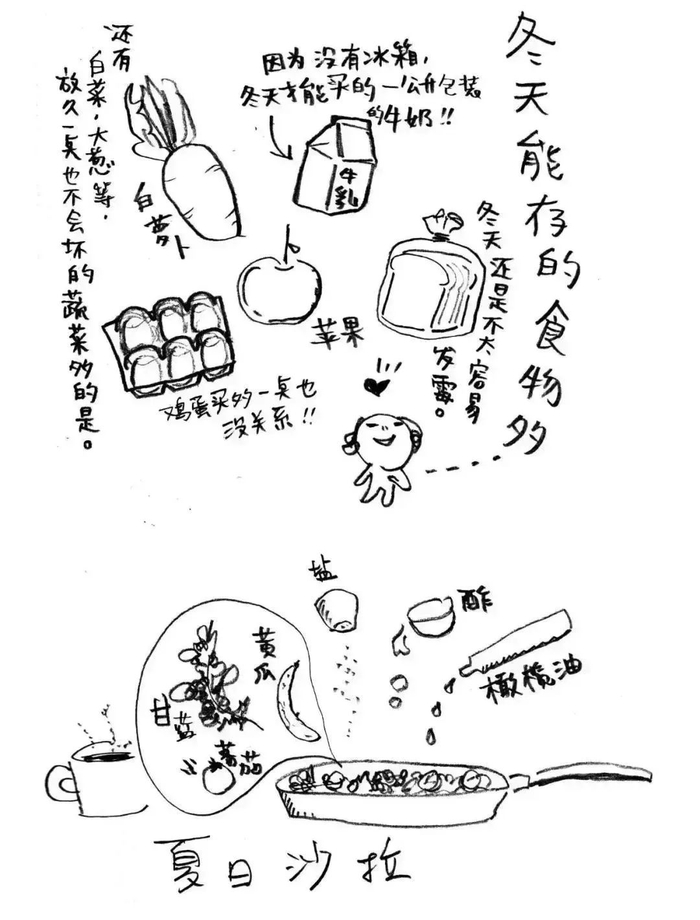 冬天能存的食物多
因为没有冰箱，
冬天才能买的一公升包装
的牛奶!!
牛乳
冬天还是不太容易
发霉。
苹果
白萝卜
还有
白菜，大葱等，
放久一点也不会坏的蔬菜多的是。
鸡蛋买多一点也
没关系!!
盐
酢
橄榄油
黄瓜
甘蓝
蕃茄
夏日沙拉